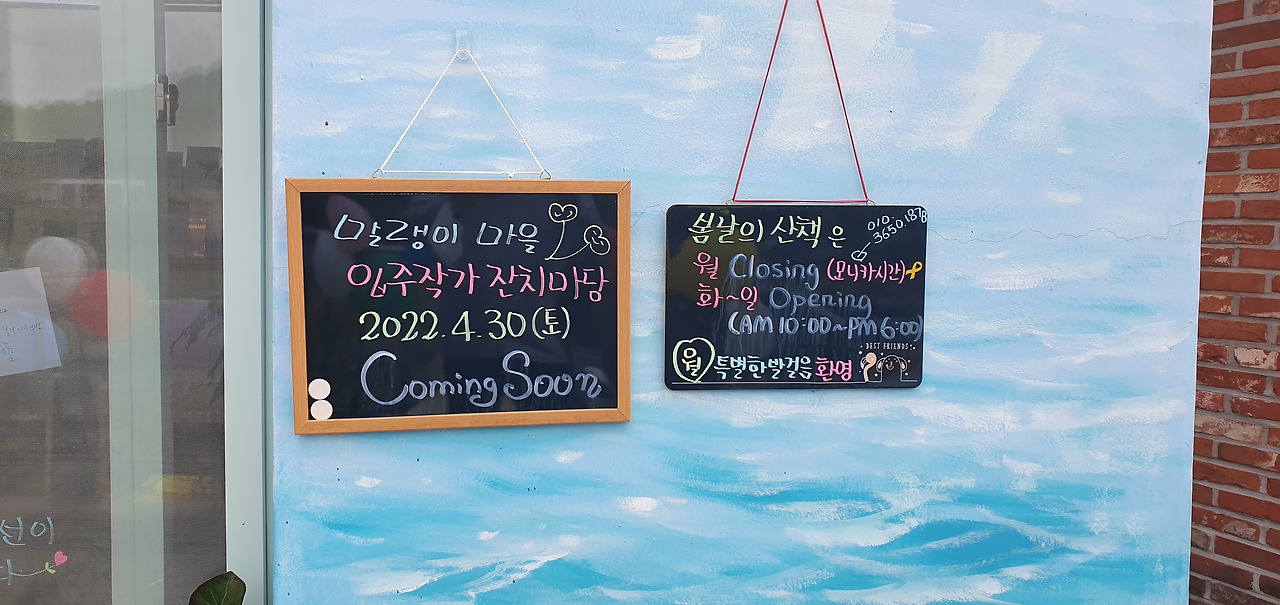 말랭이 마을
입주작가 잔치마당
2022.4.30(토)
Coming Soon
봄날의 산책은
010.
3650.1878
월 Closing (모니카시간)
화~일 Opening
(AM 10:00~PM 6:00)
BEST FRIENDS
월 특별한 발걸음 환영
선이